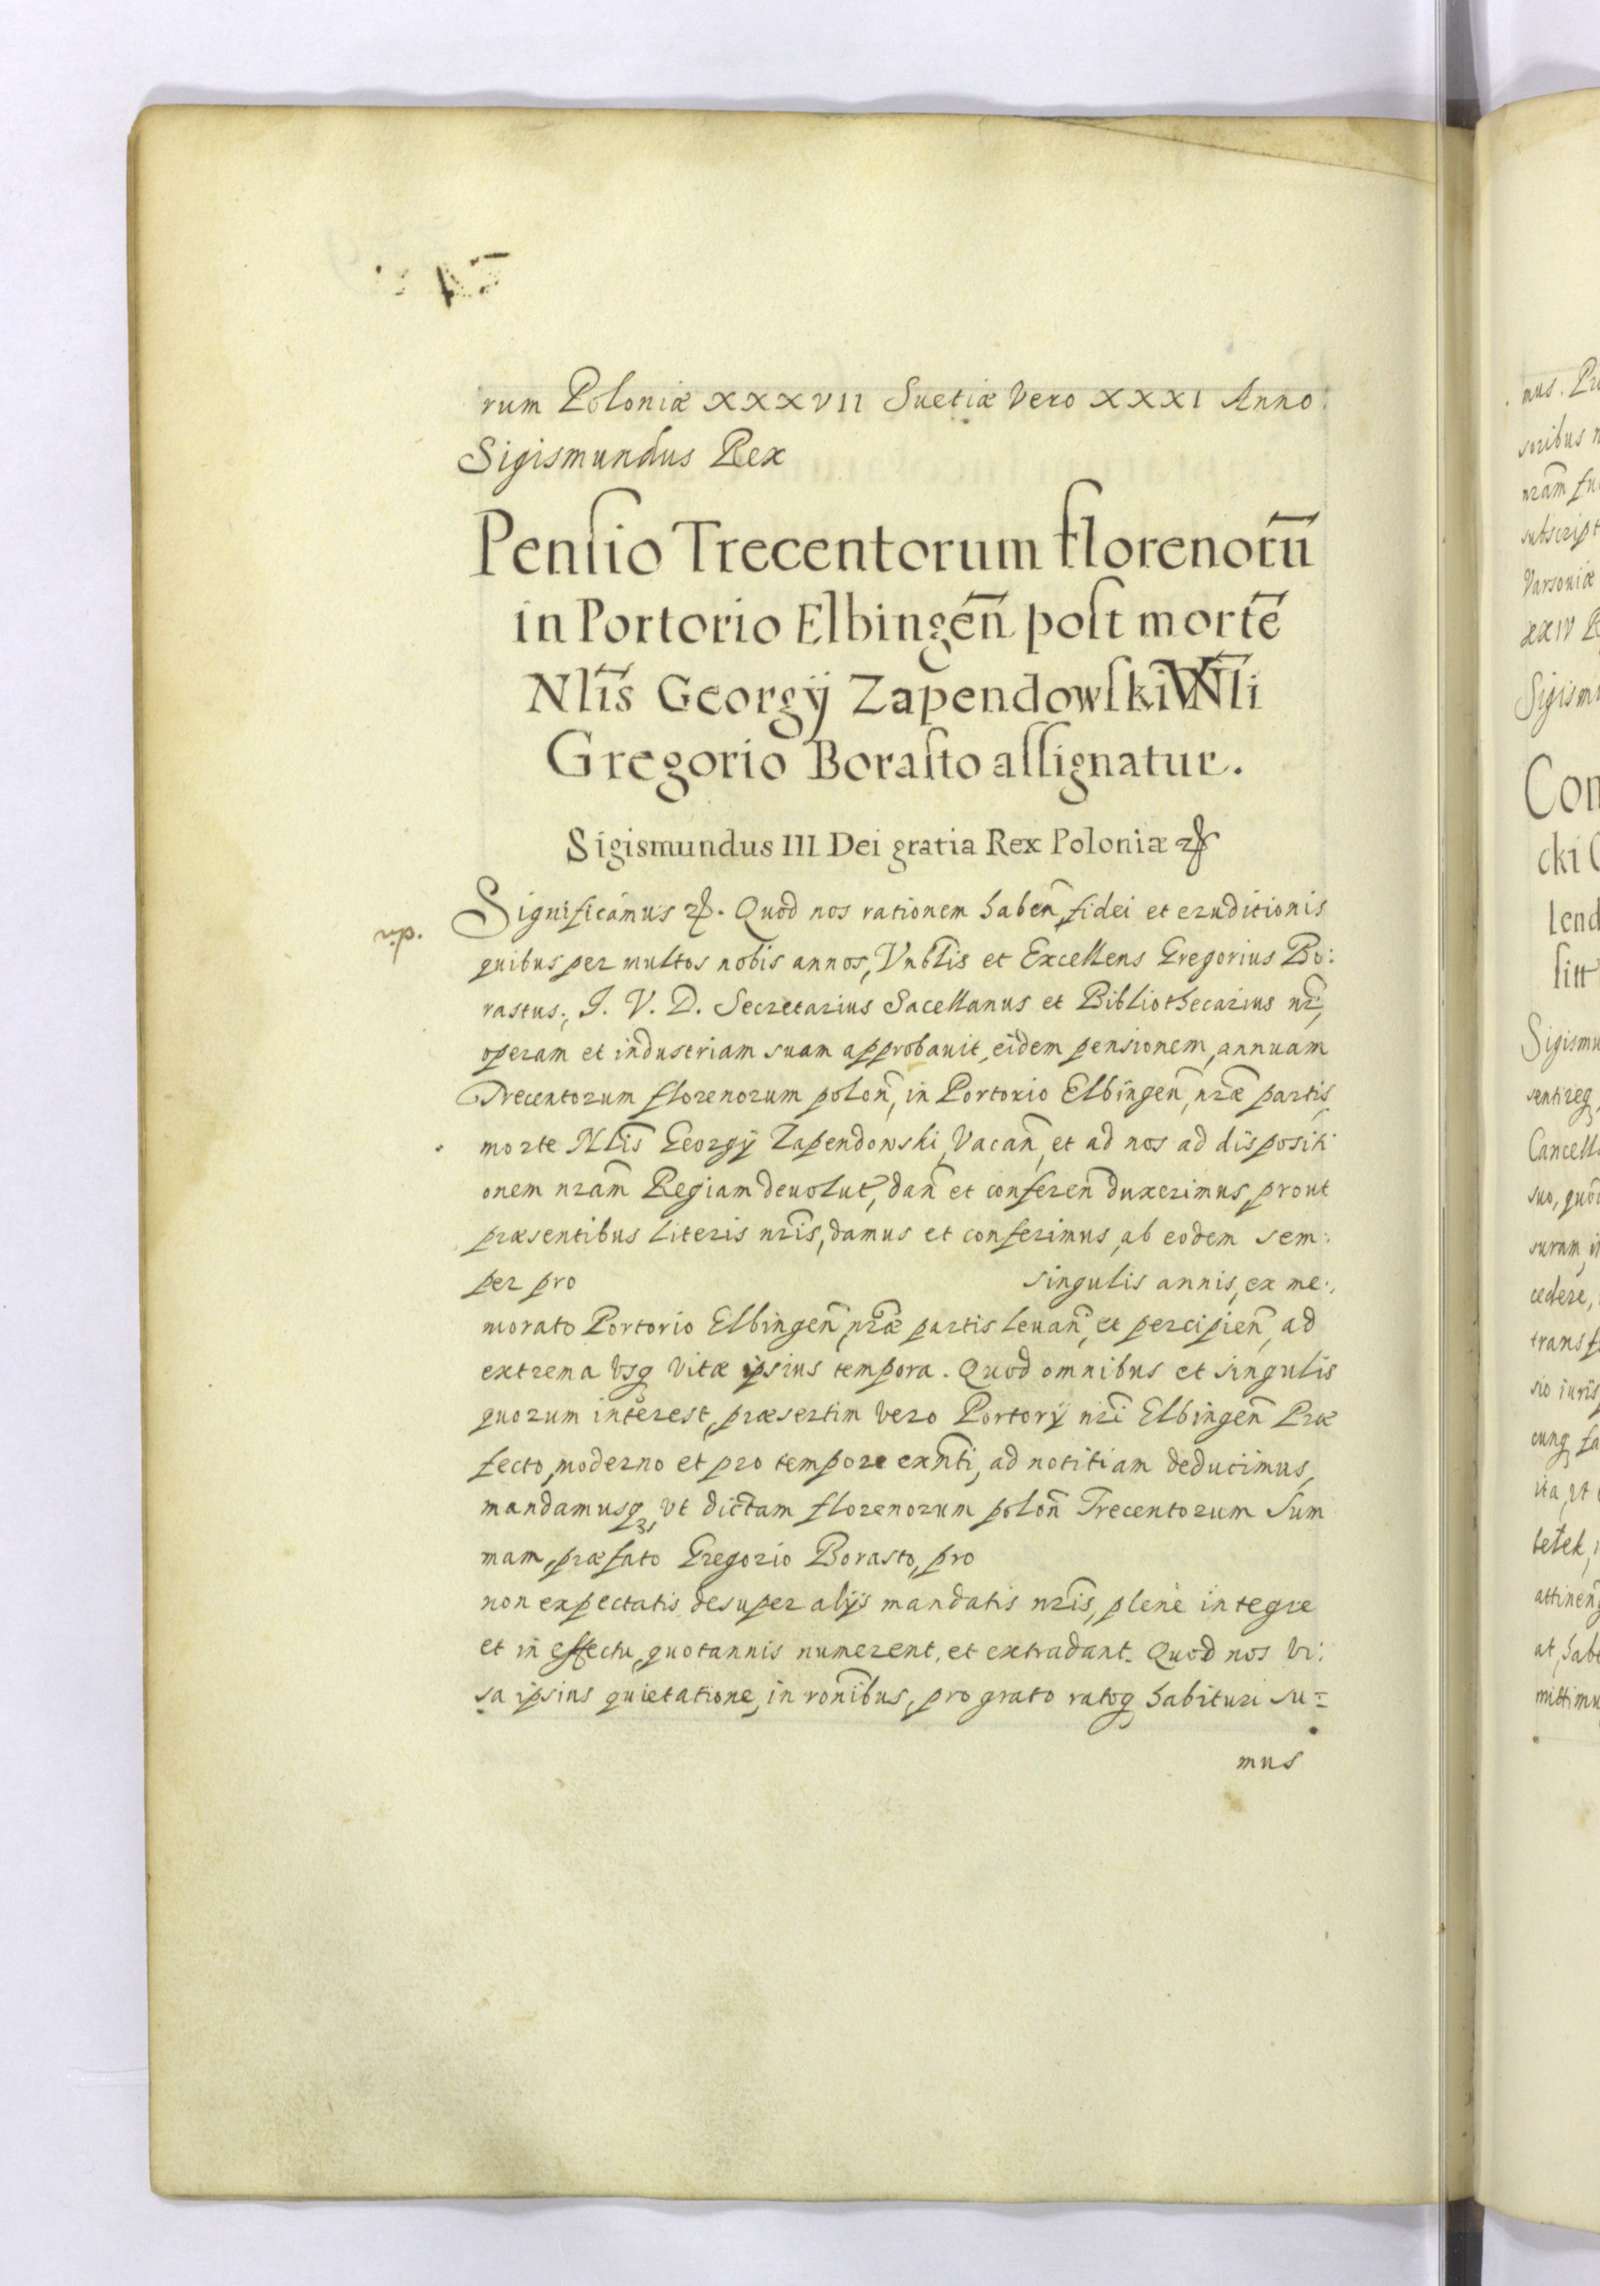 rum Poloniæ XXXVII Suetiæ Vero XXXI Anno.
Sigismundus Rex
Pensio Trecentorum florenorū
in Portorio Elbingen̄ post mortē
Nlīs Georgÿ Zapendowski VNl̄i
Gregorio Borasto assignatur.
Sigismundus III Dei gratia Rex Poloniæ &
Significamus &. Quod nos rationem haben̄, fidei et eruditionis
quibus per multos nobis annos, Vnblīs et Excellens Gregorius Bo:
rastus, J. V. D. Secretarius Sacellanus et Bibliothecarius nr̄,
operam et industriam suam approbauit, eidem pensionem, annuam
Trecentorum florenorum polon̄, in Portorio Elbingen̄, nr̄æ partis,
morte Nlīs Georgÿ Zapendowski, Vacan̄, et ad nos ad dispositi
onem nrām Regiam deuolut̄, dan̄ et conferen̄ duxerimus, prout
præsentibus literis nrīs, damus et conferimus, ab eodem sem:
per pro singulis annis, ex me:
morato Portorio Elbingen̄, nr̄æ partis leuan̄, et percipien̄, ad
extrema Vsq Vitæ ipsius tempora. Quod omnibus et singulis
quorum interest, præsertim Vero Portorÿ nrī Elbingen̄ Præ
fecto, moderno et pro tempore exn̄ti, ad notitiam deducimus,
mandamusq, Vt dictam florenorum polon̄ Trecentorum Sum
mam, præfato Gregorio Borasto, pro
non expectatis desuper alÿs mandatis nrīs, plenè integre
et in effectu, quotannis numerent, et extradant. Quod nos Vi:
sa ipsius quietatione, in ron̄ibus, pro grato ratoq habituri su=
mus
mus.
soribus
nrām
subscript
Varsoviæ
XXIV
Sigism
Con
cki
lend
sitt
Sigismu
sentireg
Cancell
suo, quo
suram, i
cedere,
trans
sio iuris
cunq fa
ita, vt
attinen
at, hab
mittimu